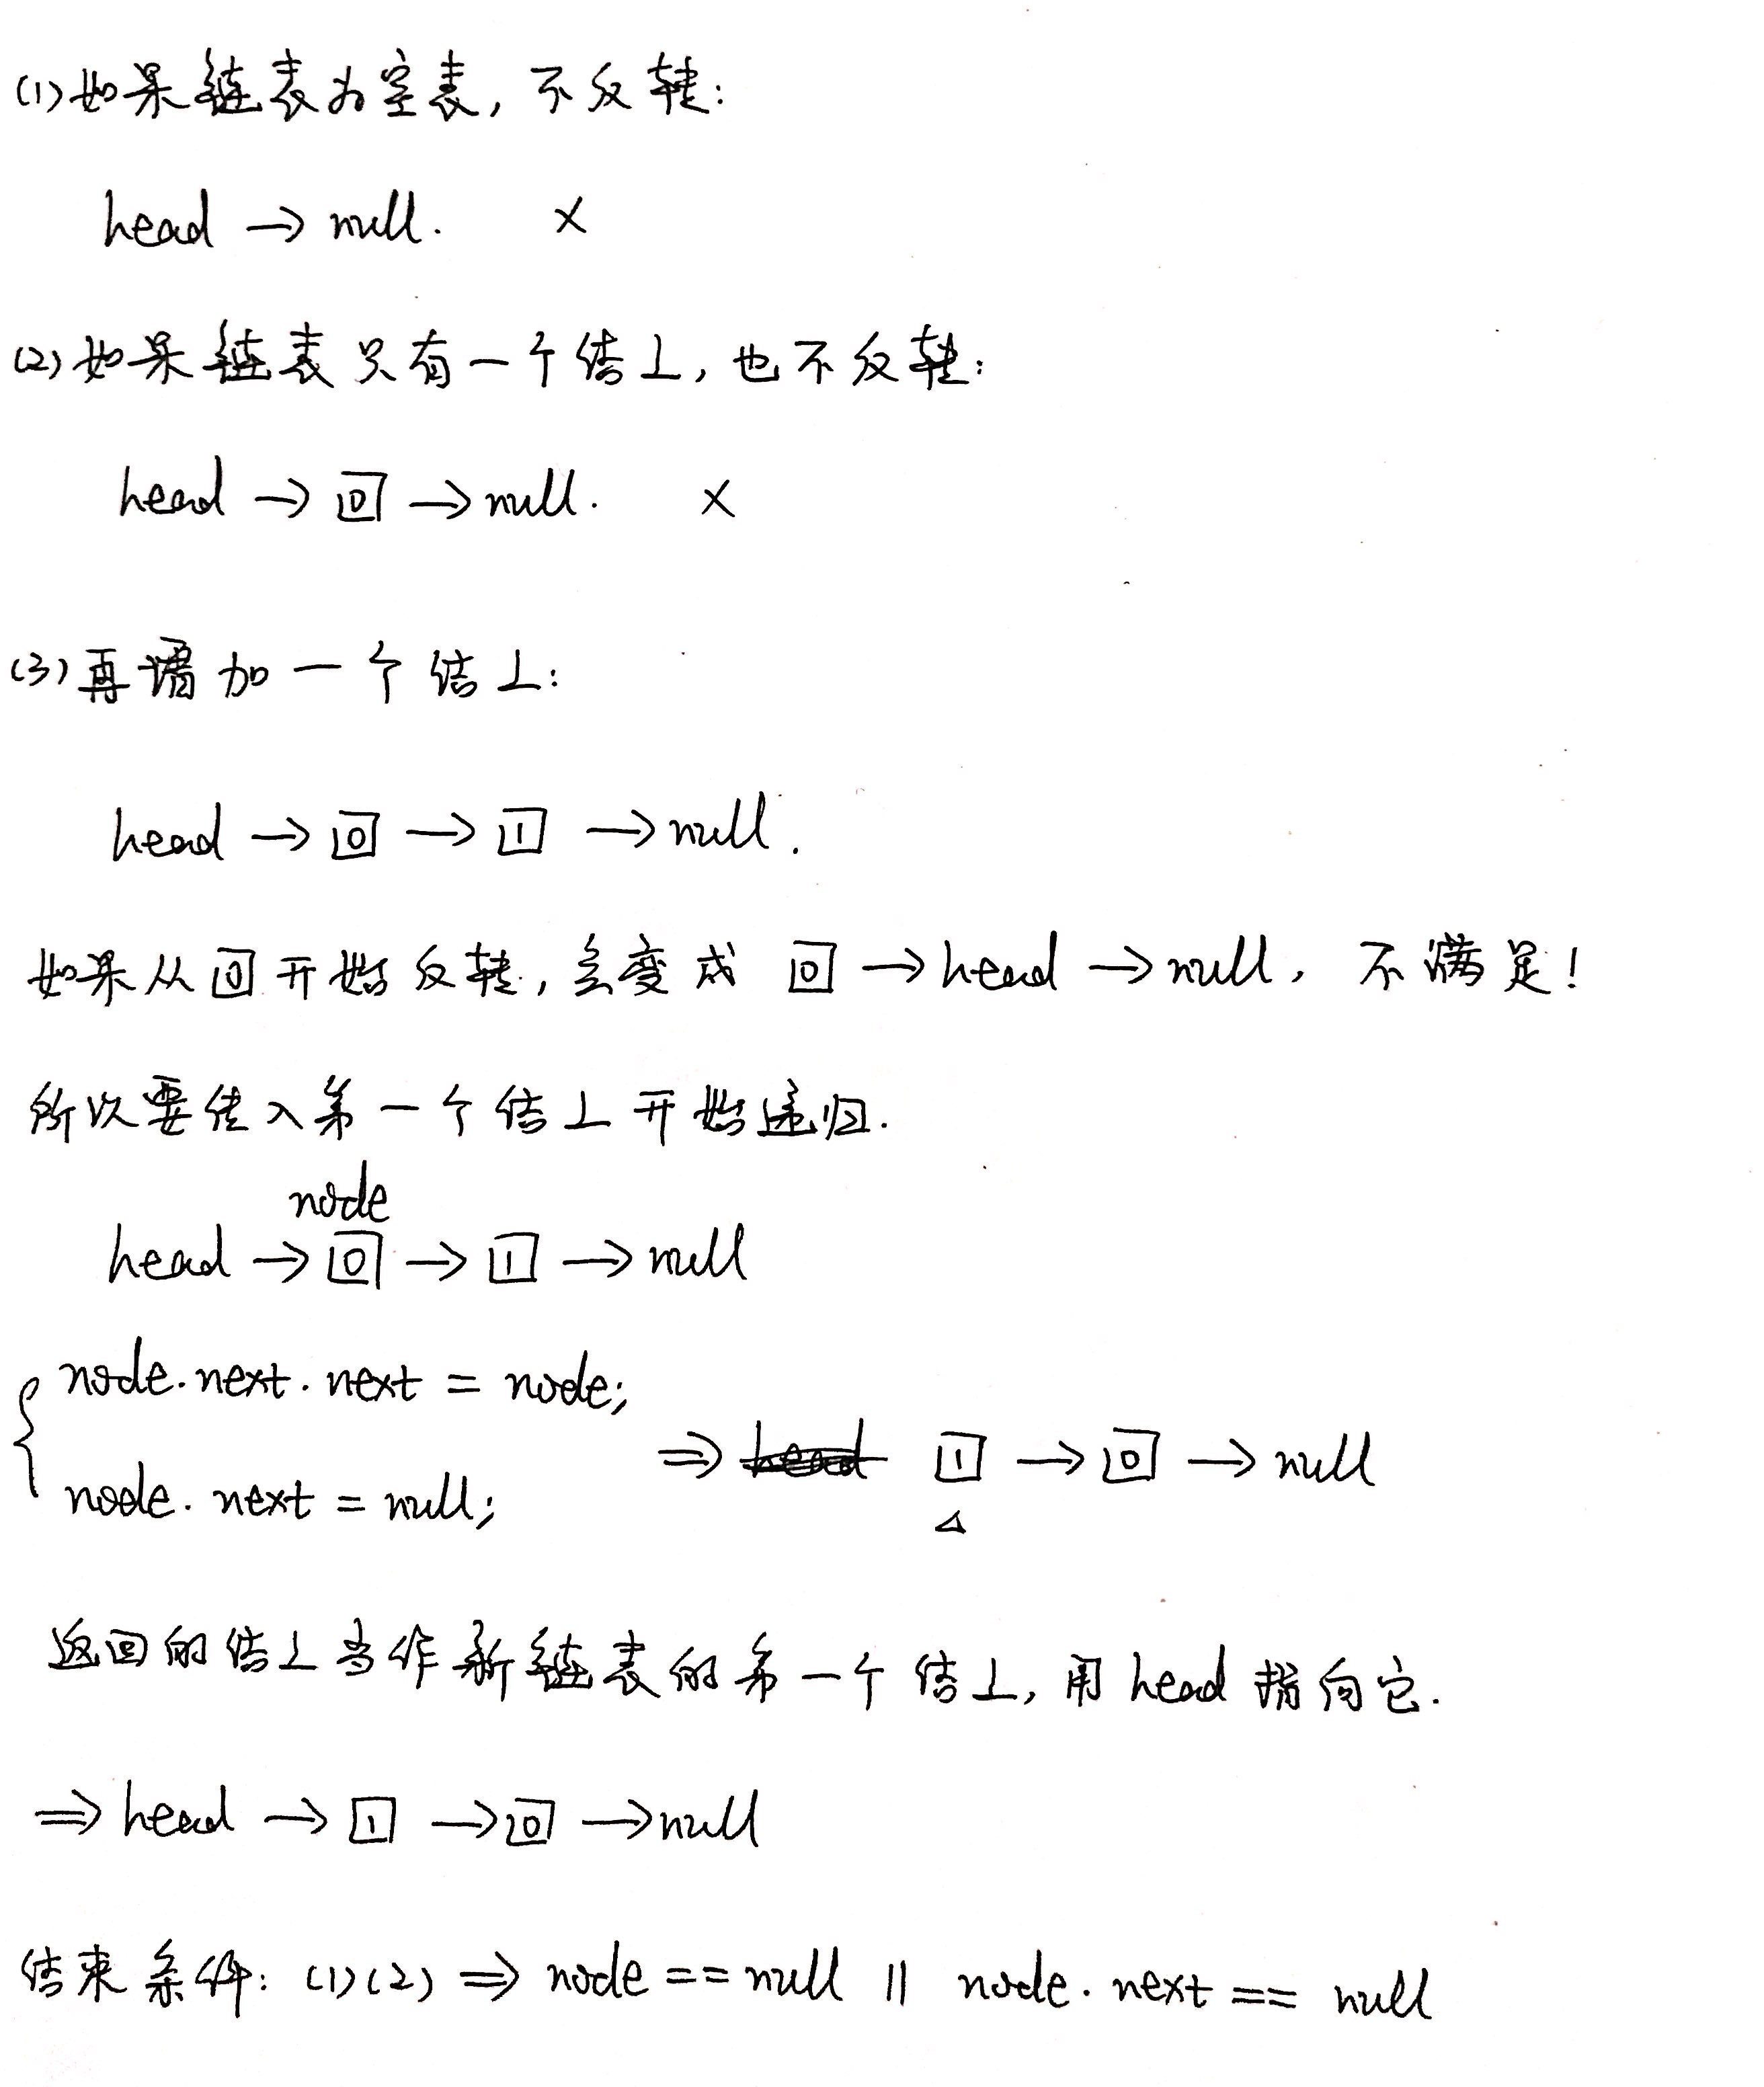 (1) 如果链表为空表, 不反转:
head → null. ×
(2) 如果链表只有一个结上, 也不反转:
head → [0] → null. ×
(3) 再增加一个结上:
head → [0] → [1] → null.
如果从[0]开始反转, 会变成 [0] → head → null, 不满足!
所以要传入第一个结上开始递归.
node
head → [0] → [1] → null
node.next.next = node;
⇒ [1] → [0] → null
node.next = null;
返回的结上当作新链表的第一个结上, 用 head 指向它.
⇒ head → [1] → [0] → null
结束条件: (1)(2) ⇒ node == null || node.next == null